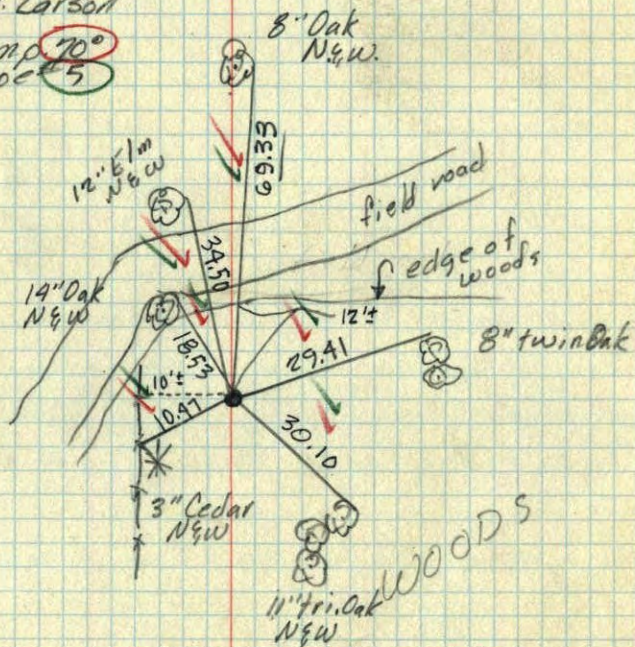 . Larson
mp. 70°
pe # 5
8" Oak
N&W.
69.33
12" Elm
N&W
34.50
field road
edge of
woods
14" Oak
N&W
18.53
12'±
8" twin Oak
29.41
10'±
10.47
30.10
3" Cedar
N&W
WOODS
11" tri. Oak
N&W